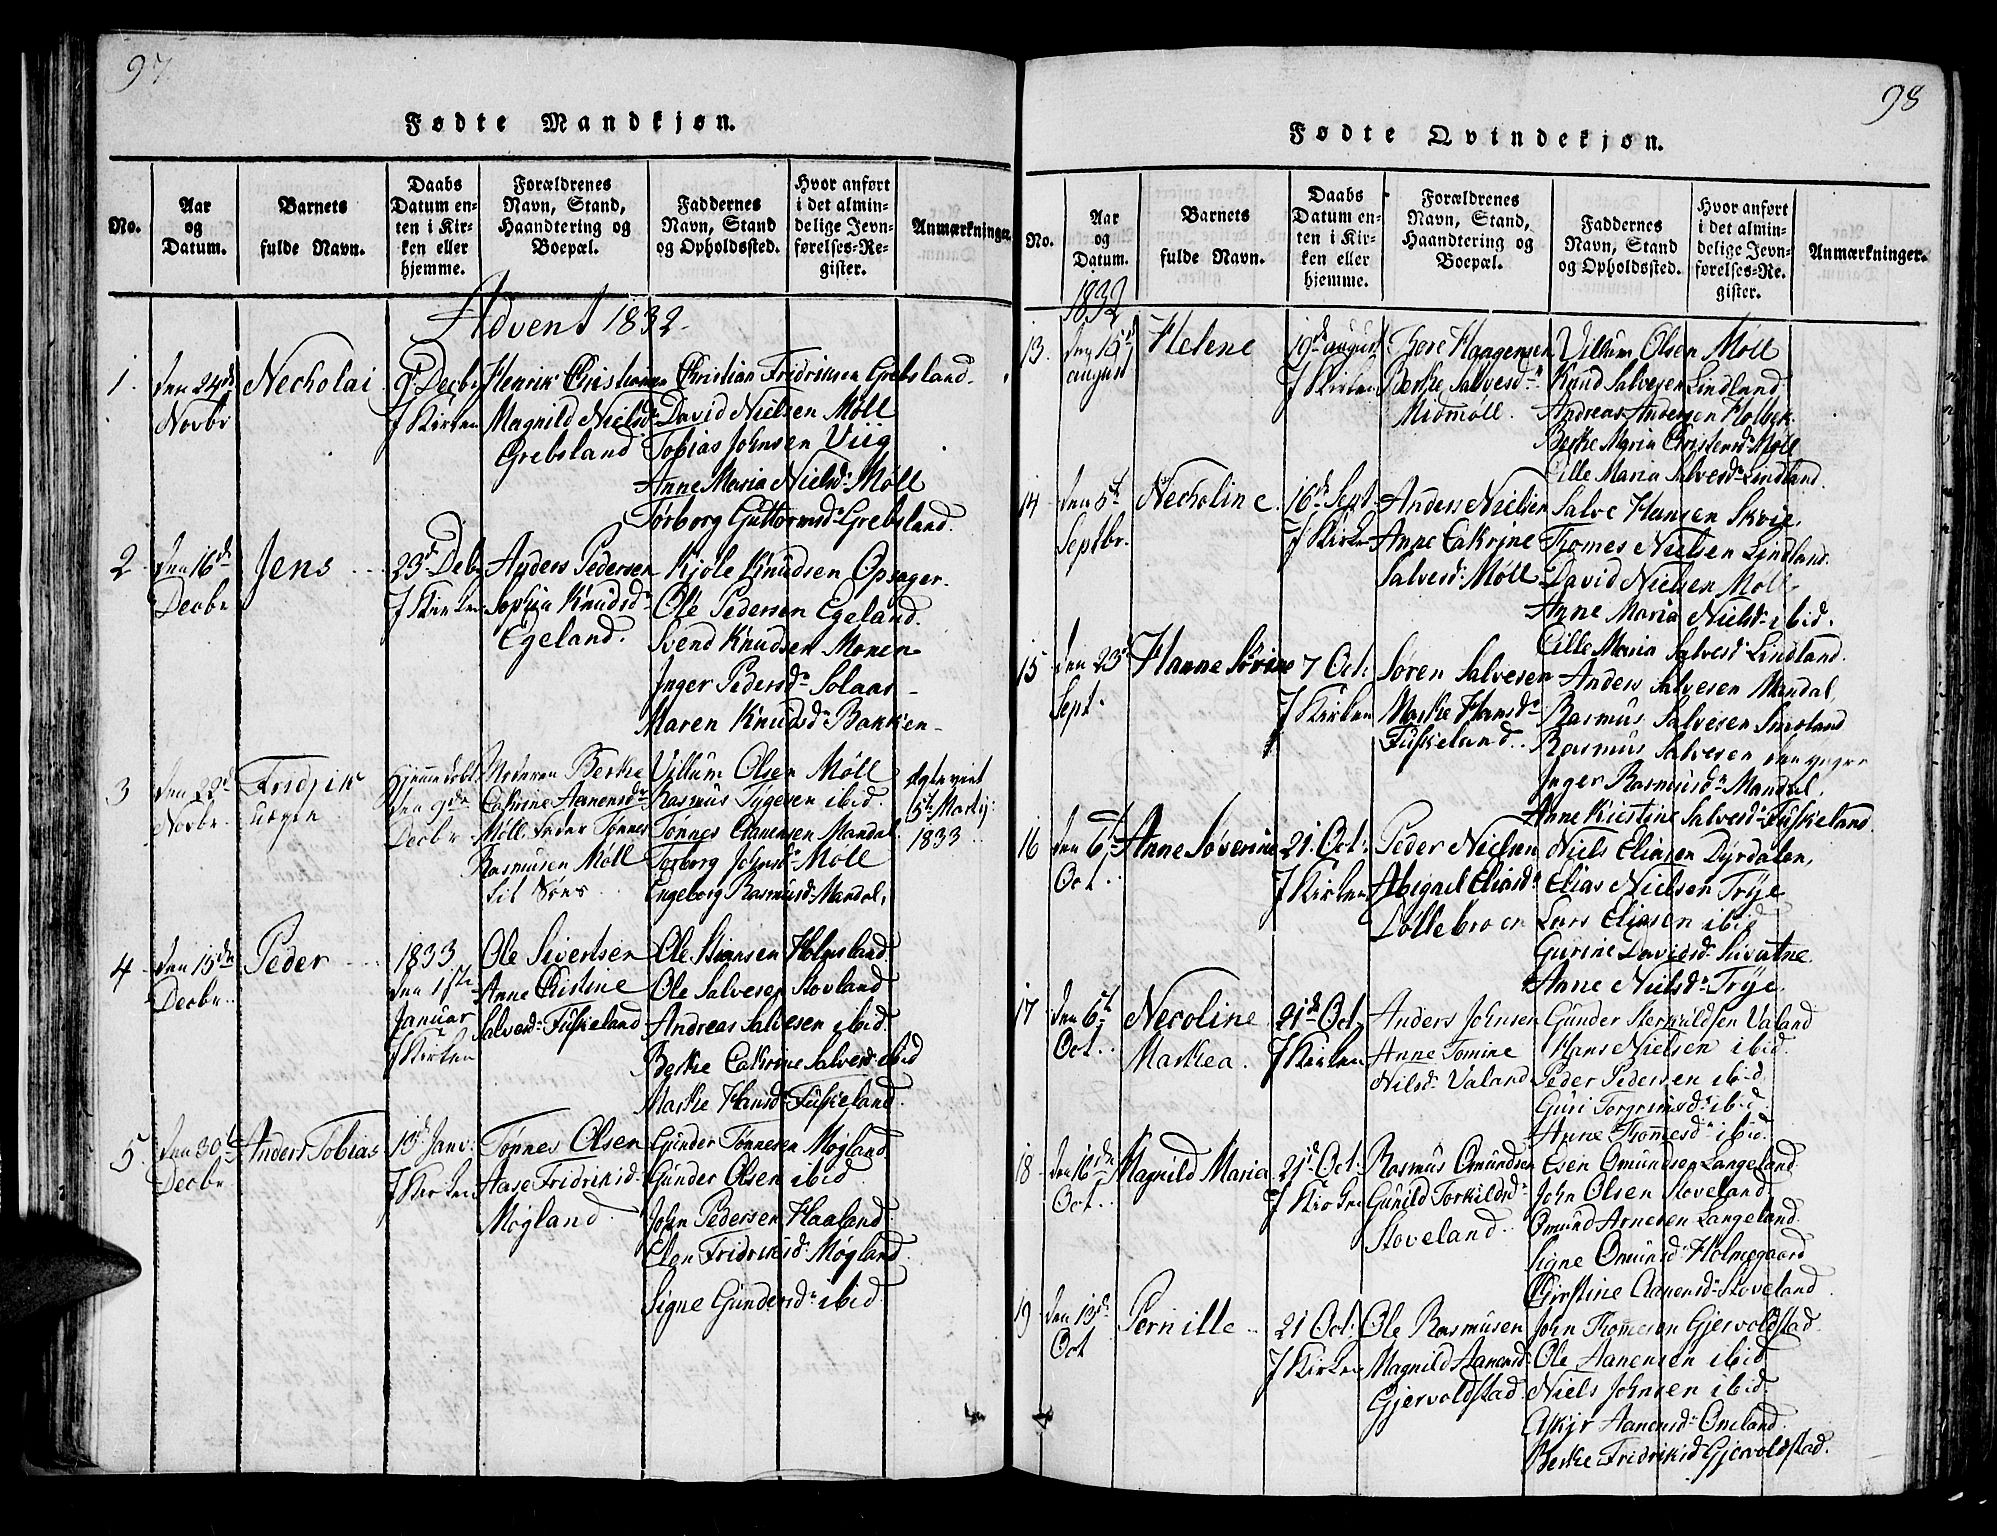 97
Fødte Mandkjøn.
No.
Aar og Datum.
Barnets fulde Navn.
Daabs Datum enten i Kirken eller hjemme.
Forældrenes Navn, Stand, Haandtering og Boepæl.
Faddernes Navn, Stand og Opholdssted.
Hvor anført i det almindelige Jevnførelses-Register.
Anmærkninger.
Advent 1832
1 den 24de Novbr
Necholai
9de Decbr J Kirken
Henrik Christiansen
Magnild Nielsd.
Grebsland
Christian Fridriksen Grebsland
David Nielsen Møll
Tobias Johnsen Viig
Anne Maria Nielsd. Møll
Torborg Guttormsd. Grebsland
2 den 16de Decbr
Jens
23de Debr J Kirken
Anders Pedersen
Sophia Knudsd.
Egeland.
Kjøle Knudsen Opsager
Ole Pedersen Egeland.
Svend Knudsen Monen
Inger Pedersd. Solaas
Maren Knudsd. Bakken
3 den 22de Novbr
Fridrik
uægte
Hjemmedøbt den 9de Decbr
Moderen Berthe
Cathrine Aanensd.
Møll. Fader Tønnes
Rasmusen Møll
Villum Olsen Møll
Rasmus Tygesen ibid
Tønnes Clausensen Mandal
Torborg Johnsd. Møll
Engeborg Rasmusd. Mandal,
1833
4 den 15de Decbr.
Peder
1833
den 1ste
Januar
J Kirken
Ole Sivertsen
Anne Christine
Salvesd. Fuskeland
Ole Stiansen Holmsland
Ole Salvesen Stovland
Andreas Salvesen ibid.
Berthe Cathrine Salvesd ibid
Marthe Hansd. Fuskeland.
5. den 30te Decbr
Anders Tobias
13de Janv: J Kirken
Tønnes Olsen
Aase Fridriksd.
Møgland
Gunder Tønnesen Møgland
Gunder Olsen ibid
John Pedersen Haaland
Elen Fridriksd. Møgland.
Signe Gundersd. ibid
98
Fødte Qvindekjøn.
No.
Aar og Datum.
Barnets fulde Navn.
Daabs Datum enten i Kirken eller hjemme.
Forældrenes Navn, Stand, Haandtering og Boepæl.
Faddernes Navn, Stand og Opholdssted.
Hvor anført i det almindelige Jevnførelses-Register.
Anmærkninger.
1832
13. den 15de august
Helene
19de august J Kirken
Tore Haagensen
Berthe Salvesd.
Midmøll.
Villum Olsen Møll
Knud Salvesen Lindland
Andreas Andersen Holbek
Berthe Maria Christensd. Møll
Cille Maria Salvesd. Lindland.
14 den 5te Septbr.
Necholine
16de Sept J Kirken
Anders Nielsen
Anne Cathrine
Salvesd. Møll
Salve Hansen Skoie.
Thomes Nielsen Lindland.
David Nielsen Møll
Anne Maria Nielsd. ibid.
Cille Maria Salvesd. Lindland.
15 den 23de Sept.
Hanne Sørine
7 Oct: J Kirken
Søren Salvesen
Marthe Hansd.
Fuskeland
Anders Salvesen Mandal
Rasmus Salvesen Smesland
Rasmus Salvesen den yngre
Inger Rasmusd. Mandal.
Anne Kirstine Salvesd. Fuskeland.
16 den 6te Oct.
Anne Søverine
21. Oct: J Kirken
Peder Nielsen
Abigael Eliasd.
Lollebroen
Niels Eliasen Dyrdalen,
Elias Nielsen Trye
Lars Eliasen ibid
Gurine Davidsd. Sivatne
Anne Nielsd. Trye.
17 den 6te Oct.
Necoline
Marthea.
21de Oct J Kirken
Anders Johnsen
Anne Tomine
Nilsd. Valand
Gunder Sterkuldsen Valand
Hans Nielsen ibid.
Peder Pedersen ibid.
Guri Torgrimsd. ibid.
Anne Thomesd. ibid.
18 den 16de Oct.
Magnild Maria
21de Oct: J Kirken
Rasmus Omundsen
Gunild Torkildsd.
Stoveland
Esen Omundsen Langeland
John Olsen Stoveland
Omund Arnesen Langeland.
Signe Omunsd. Holmegaard
Christine Aanensd. Stoveland
19 den 13de Oct
Pernille
21 Oct: J Kirken
Ole Rasmusen
Magnild Aanensd.
Gjervoldstad
John Thomesen Gjervoldstad.
Ole Aanensen ibid
Niels Johnsen ibid
Askjer Aanensd. Oneland.
Berthe Fridriksd. Gjervoldstad.